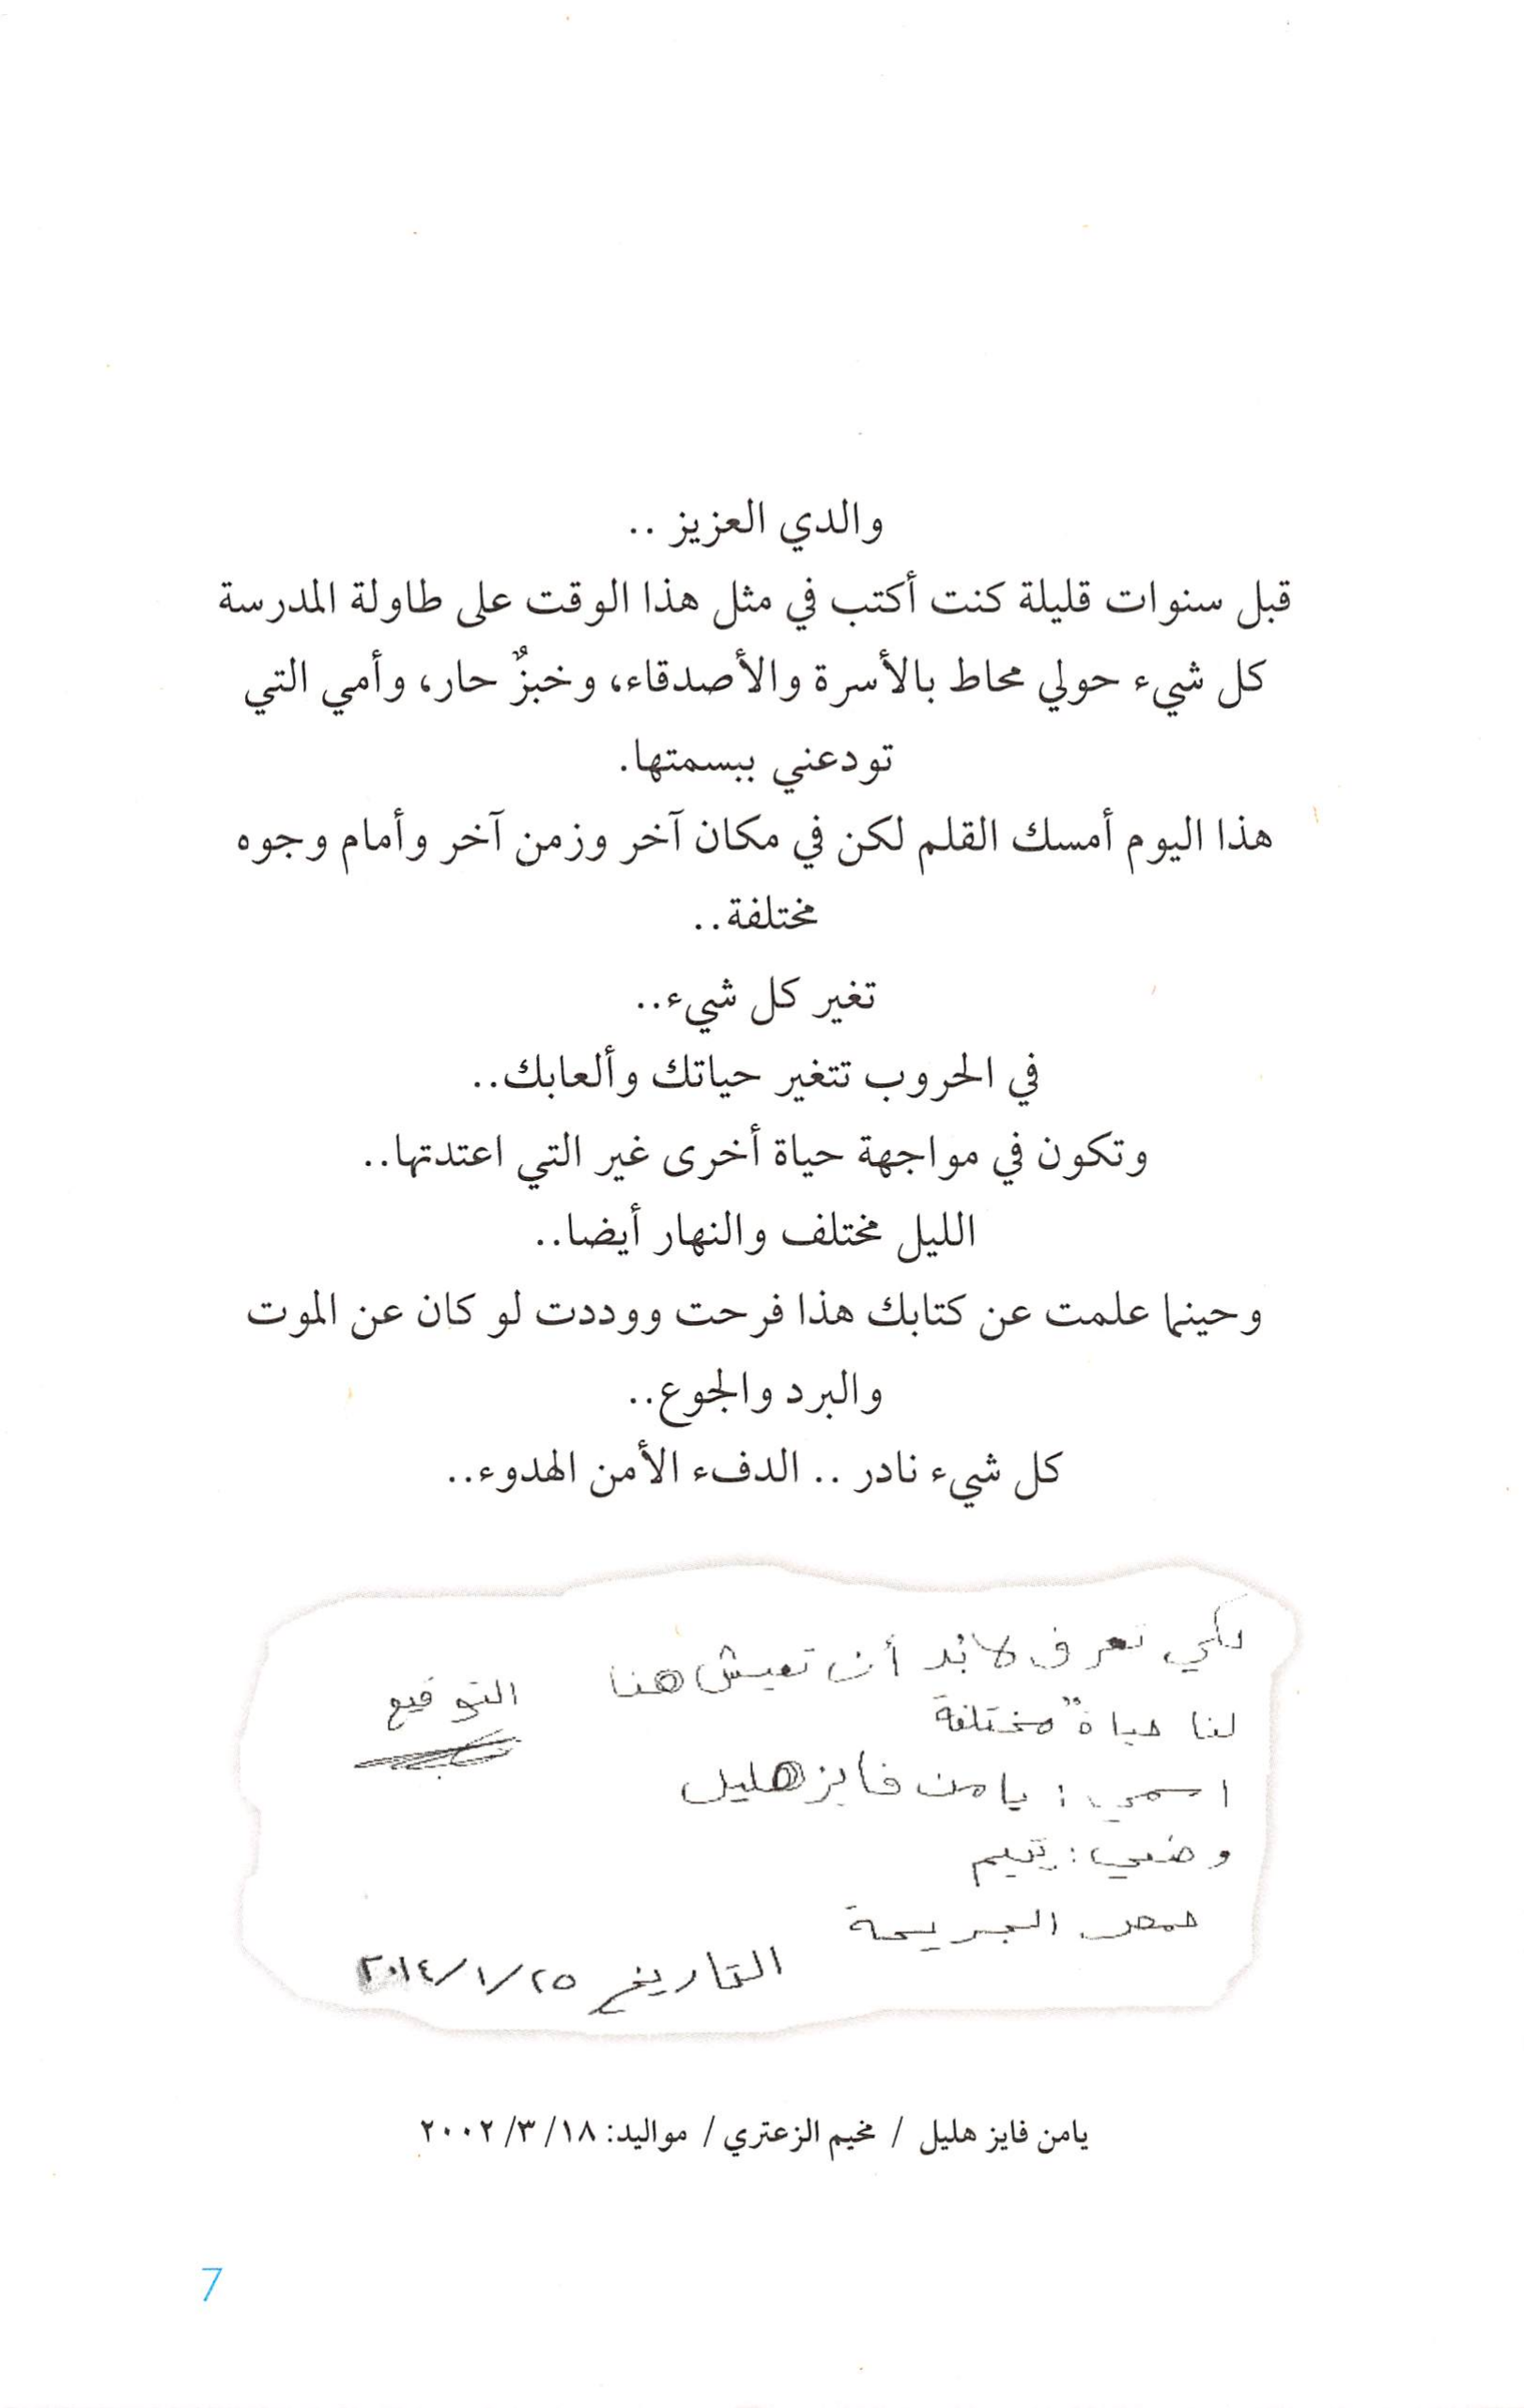 والدي العزيز ..
قبل سنوات قليلة كنت أكتب في مثل هذا الوقت على طاولة المدرسة
كل شيء حولي محاط بالأسرة والأصدقاء، وخبزٌ حار، وأمي التي
تودعني ببسمتها.
هذا اليوم أمسك القلم لكن في مكان آخر وزمن آخر وأمام وجوه
مختلفة..
تغير كل شيء..
في الحروب تتغير حياتك وألعابك..
وتكون في مواجهة حياة أخرى غير التي اعتدتها..
الليل مختلف والنهار أيضا..
وحينما علمت عن كتابك هذا فرحت ووددت لو كان عن الموت
والبرد والجوع..
كل شيء نادر .. الدفء الأمن الهدوء..
لكي تعرف لابُد أن تعيش هنا
التوقيع
لنا حياةٌ مختلفة
اسمي : يامن فايز هليل
وضعي : يتيم
حمص الجريحة
التاريخ ٢٥/١/٢٠١٤
يامن فايز هليل / مخيم الزعتري / مواليد: ١٨/ ٣/ ٢٠٠٢
7